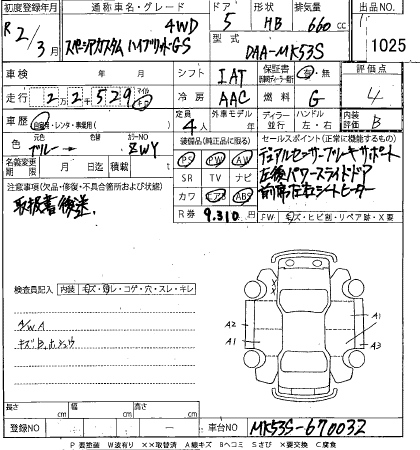 初度登録年月 通称車名・グレード ドア 形状 排気量 出品NO
R 2/3月 スペーシアカスタム ハイブリッドGS 4WD 5 HB 660 cc 1025
型式 DAA-MK53S
車検 年 月 シフト IAT 保証書 有・無 評価点
走行 2 2千 529 冷房 AAC 燃料 G 4
車歴 自家用・レンタ・事業用( ) 定員 4人 外車モデル ディーラー・並行 左・右 内装評価 B
色 元色 ブルー → カラーNO ZWY 装備品(純正品に限る) セールスポイント(正常に機能するもの)
名義変更期限 月 日迄 積載 t PS PW AW デュアルセンサーブレーキサポート
注意事項(欠品・修復・不具合箇所および状態) SR TV ナビ 左後パワースライドドア
取扱書後送 カワ エアB ABS 前席左右シートヒーター
R券 9,310 円 FW キズ・ヒビ割・リペア跡・X要
検査員記入 内装 キズ・ヨゴレ・コゲ・穴・スレ・キレ
A/W A
A2 A1
A1 A3
長さ cm 幅 cm 高さ cm
登録NO 車台NO MK53S-670032
P 要塗装 W波有り XX取替済 A線キズ Bヘコミ Sさび X要交換 C腐食